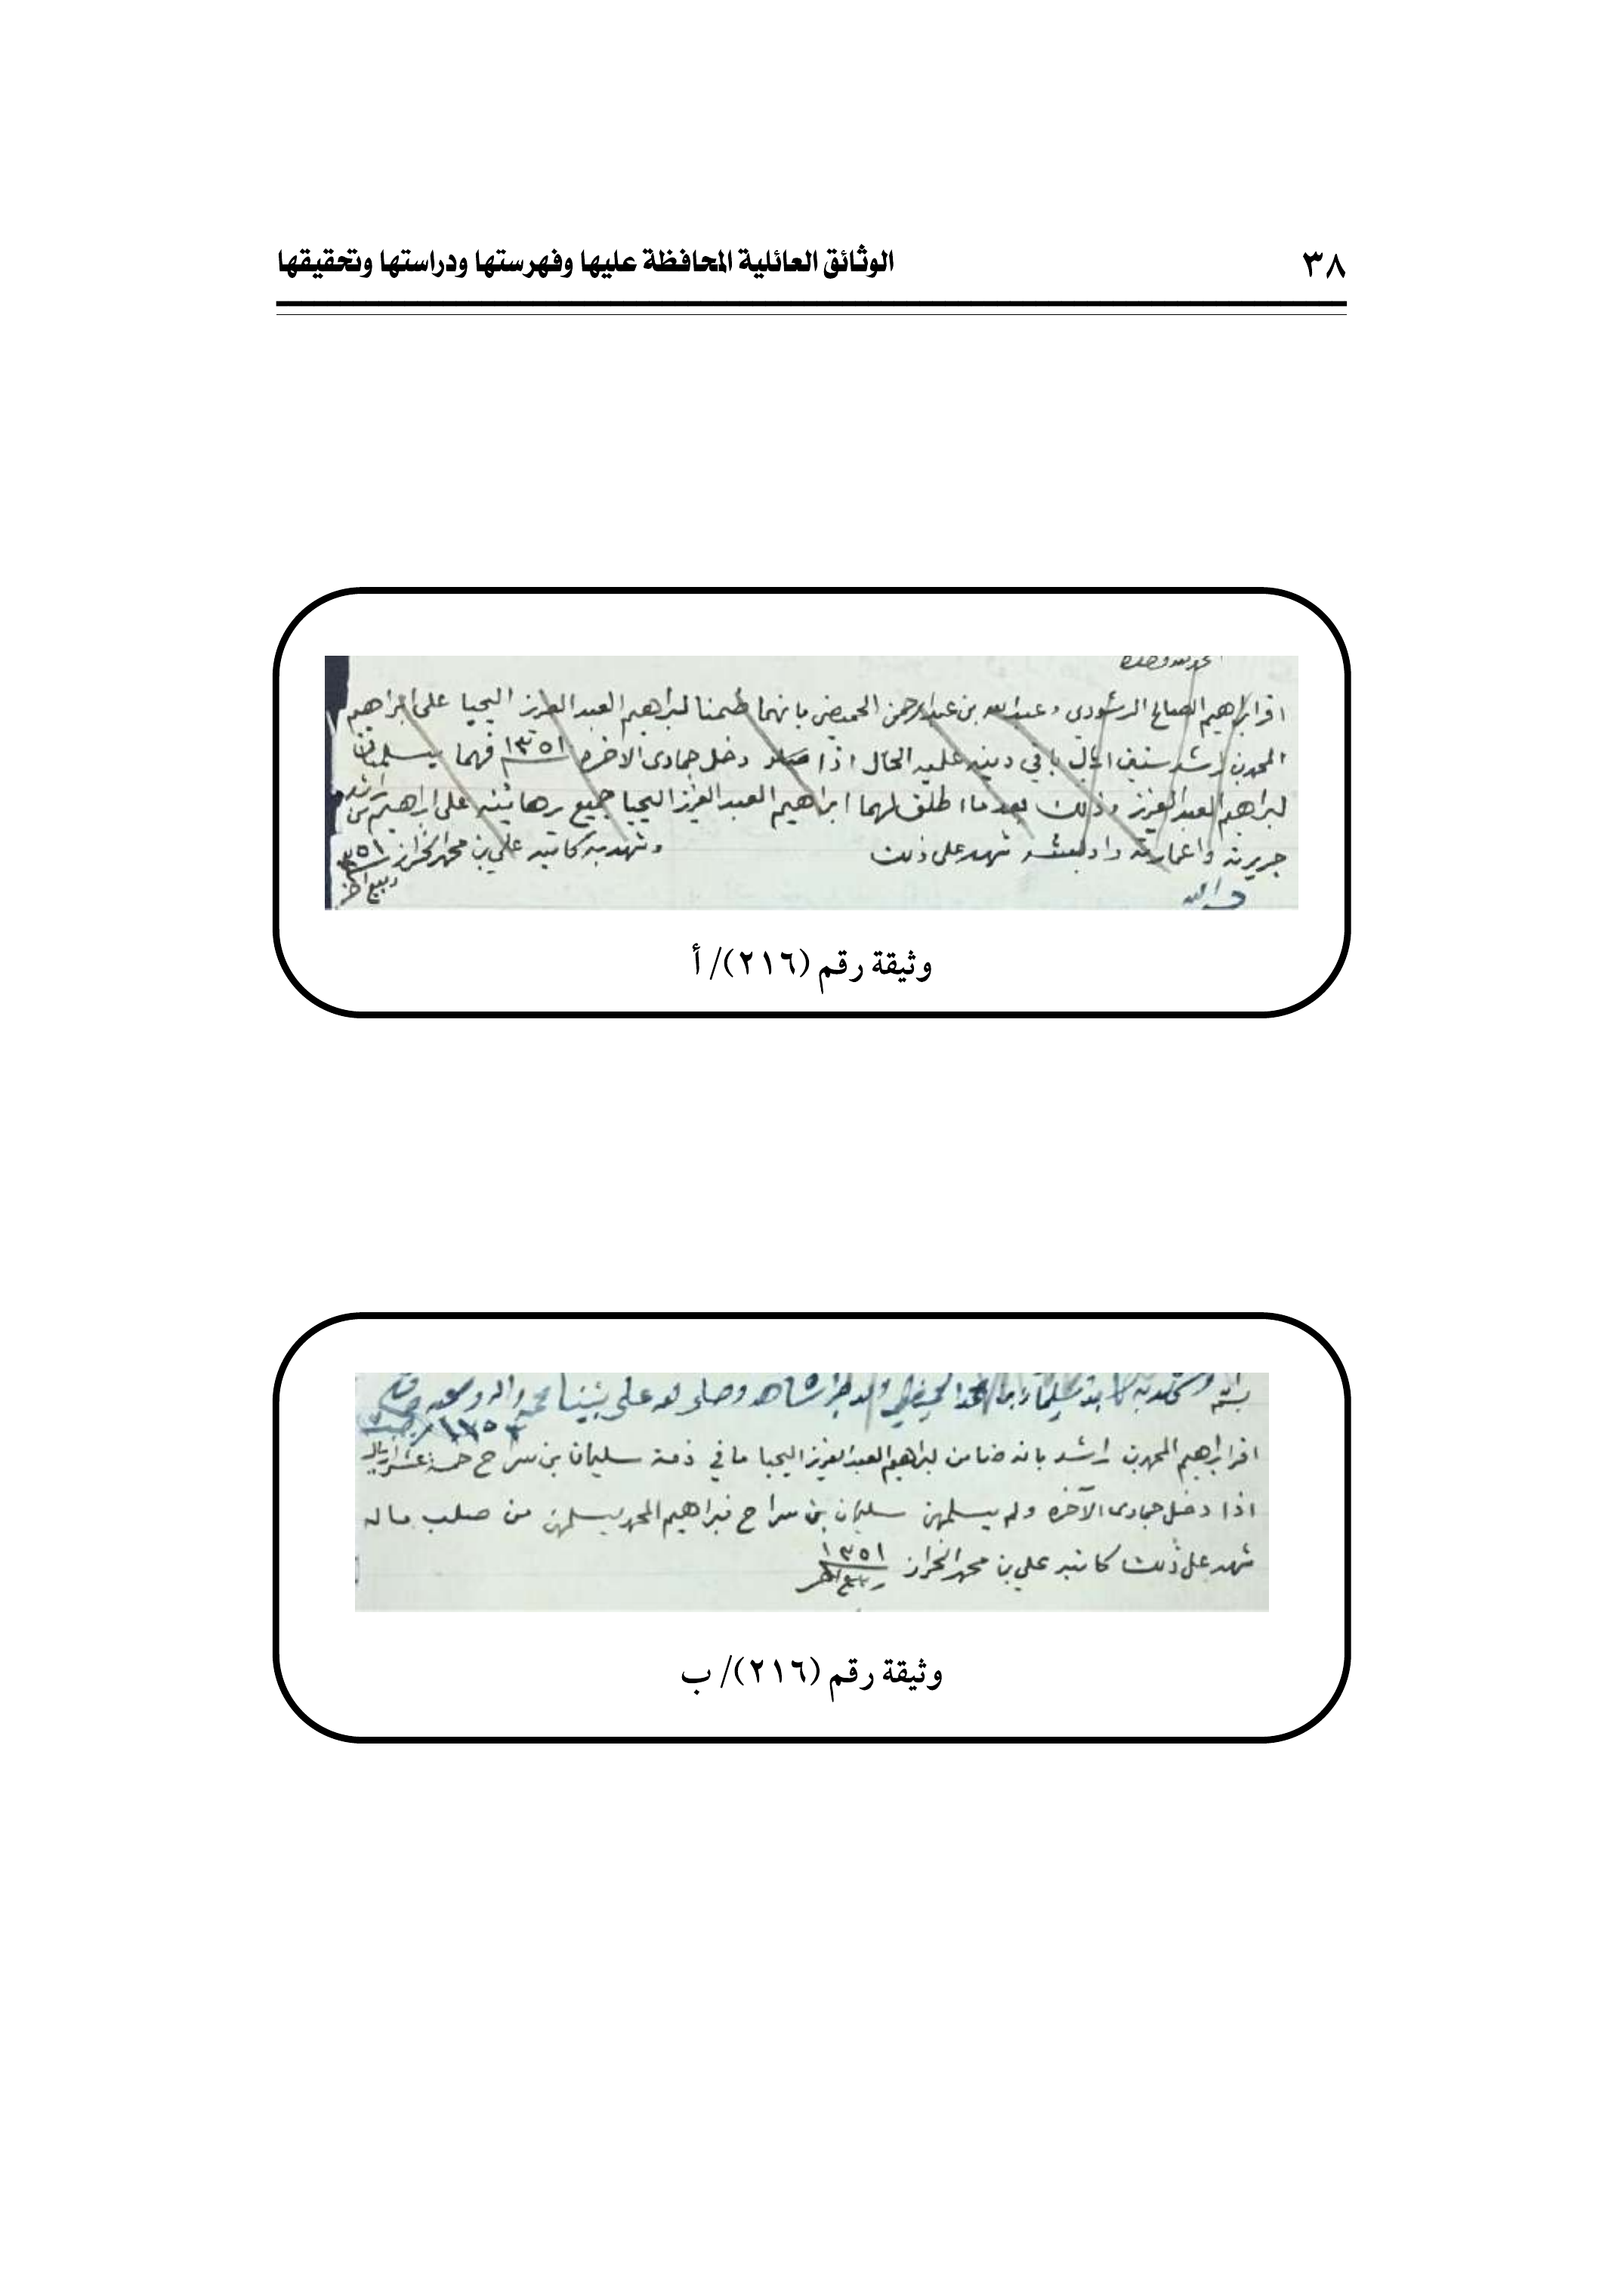 ٣٨ الوثائق العائلية المحافظة عليها وفهرستها ودراستها وتحقيقها
الحمد لله وحده
اقر ابراهيم الصالح الرشودي وعبدالله بن عبدالرحمن الحميضي بانهما ضمنا لبراهيم العبد العزيز اليحيا على ابراهيم
المحمد بن راشد ستين اريال باقي دينه عليه الحال اذا دخل جمادى الاخره ١٣٥١ فهما يسلمان
لبراهيم العبد العزيز وذلك بعد ما اطلق لهما ابراهيم العبد العزيز اليحيا جميع رهاينه على ابراهيم بن راشد
جريرته واعمارته شهد على ذلك وشهد به كاتبه علي بن محمد الخراز ١٣٥١
ربيع اخر
وثيقة رقم (٢١٦)/ أ
وشهد به شاهد وصلى الله على نبينا محمد واله وصحبه
اقر ابراهيم المحمد بن راشد بانه ضامن لبراهيم العبد العزيز اليحيا ما في ذمة سليمان بن سراح خمسة عشر اريال
اذا دخل جمادى الآخره ولم يسلمهن سليمان بن سراح فبراهيم المحمد يسلمهن من صلب ماله
شهد على ذلك كاتبه علي بن محمد الخراز ١٣٥١
ربيع اخر
وثيقة رقم (٢١٦)/ ب